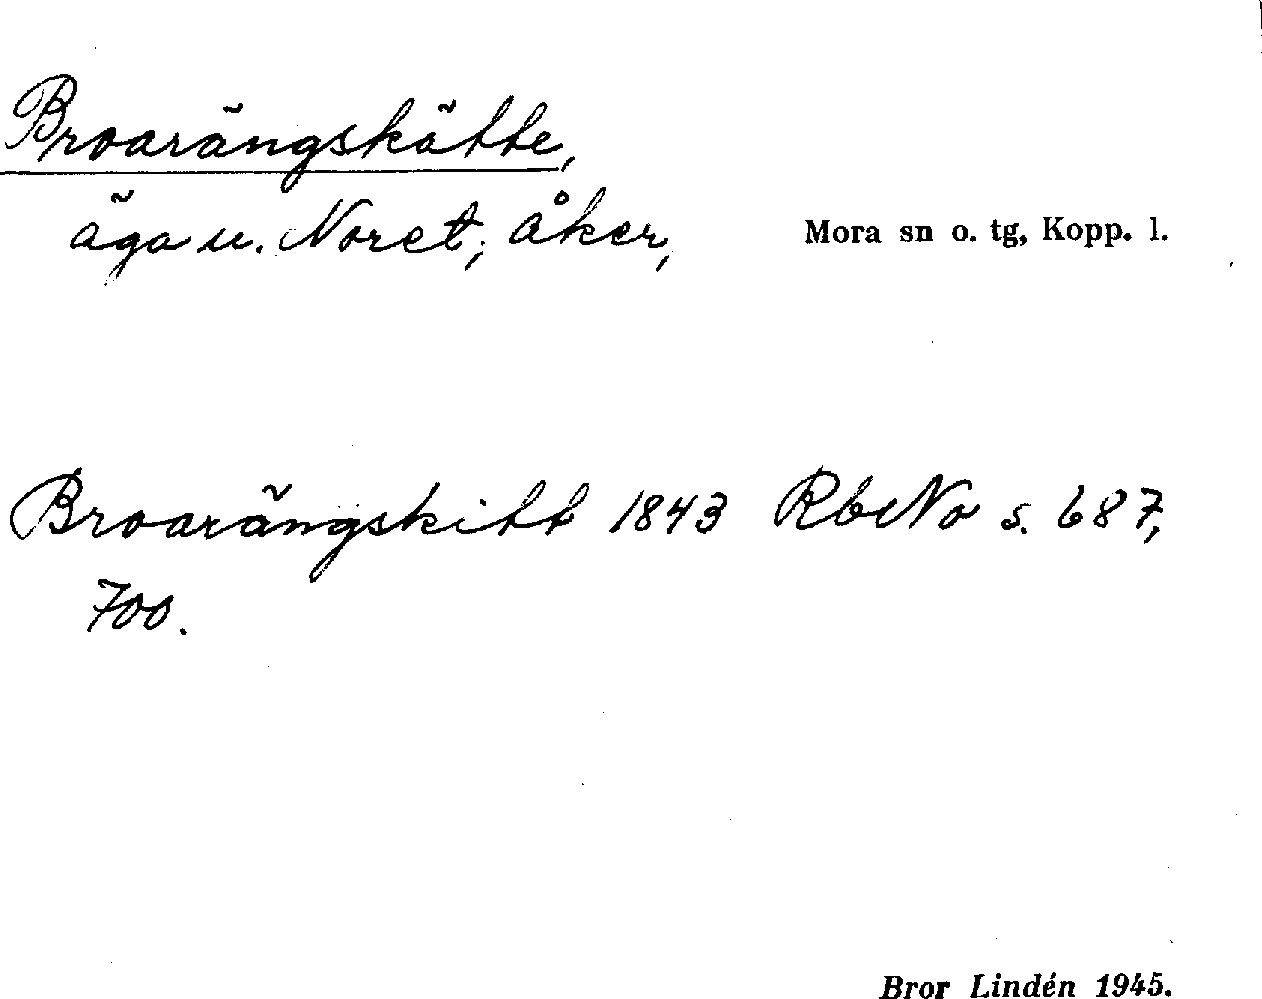 Broarängskätte,
äga u. Noret, åker, Mora sn o. tg, Kopp. l.
Broarängskitt 1843 RbNo s. 687,
700.
Bror Lindén 1945.